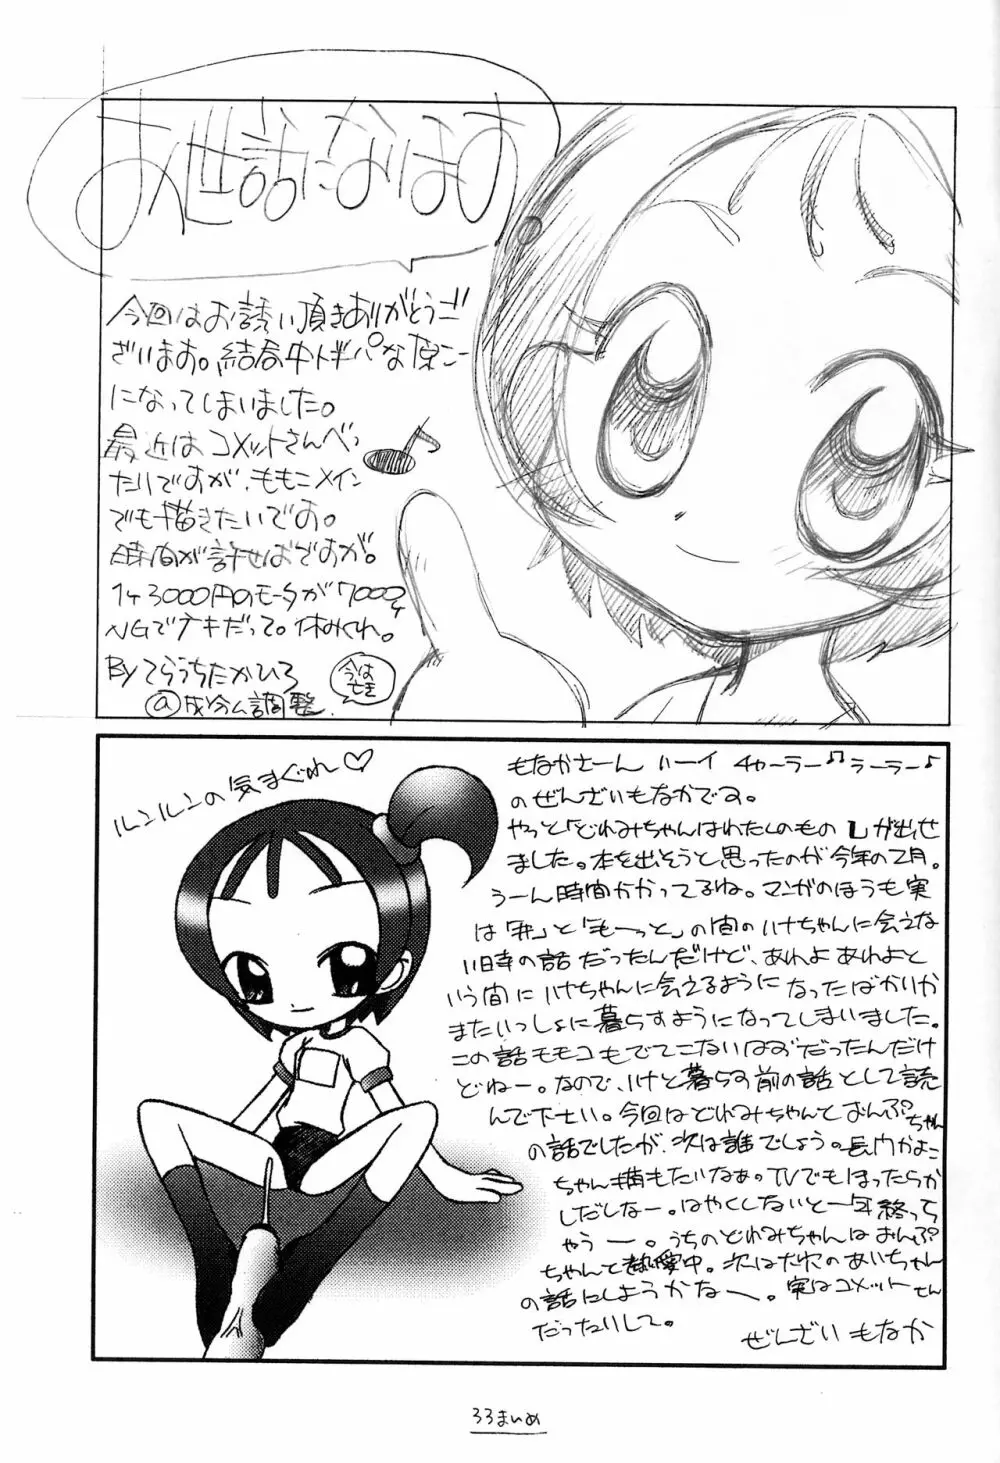 お世話になります
今回はお誘い頂きありがとうご
ざいます。結局中トハンパな原こー
になってしまいました。
最近はコメットさんべっ
たいですが、ももこメイン
でも描きたいです。
時間が許せばですが。
1ヶ3000円のモータが7000ヶ
NGでナキだって。休みくれ。
Byてらうちたかひろ
@成分ム調整
今は
亡き
ルンルンの気まぐれ♡
もなかさーん ハーイ チャーラー♫ラーラー♪
のぜんざいもなかです。
やっと「どれみちゃんはわたしのもの」が出せ
ました。本を出そうと思ったのが今年の2月。
うーん時間かかってるね。マンガのほうも実
は「#」と「もーっと」の間のハナちゃんに会えな
い時の話だったんだけど、あれよあれよと
いう間にハナちゃんに会えるようになったばかりか
またいっしょに暮らすようになってしまいました。
この話モモコもでてこないはずだったんだけ
どねー。なので、ハナと暮らす前の話として読
んで下さい。今回はどれみちゃんとおんぷちゃん
の話でしたが、次は誰でしょう。長門かよこ
ちゃん描もたいなぁ。TVでもほったらか
しだしなー。はやくしないと一年終っち
ゃうー。うちのどれみちゃんはおんぷ
ちゃんと熱愛中。次はだれのあいちゃん
の話にしようかなー。実はコメットさん
だったりして。
ぜんざいもなか
33まいめ